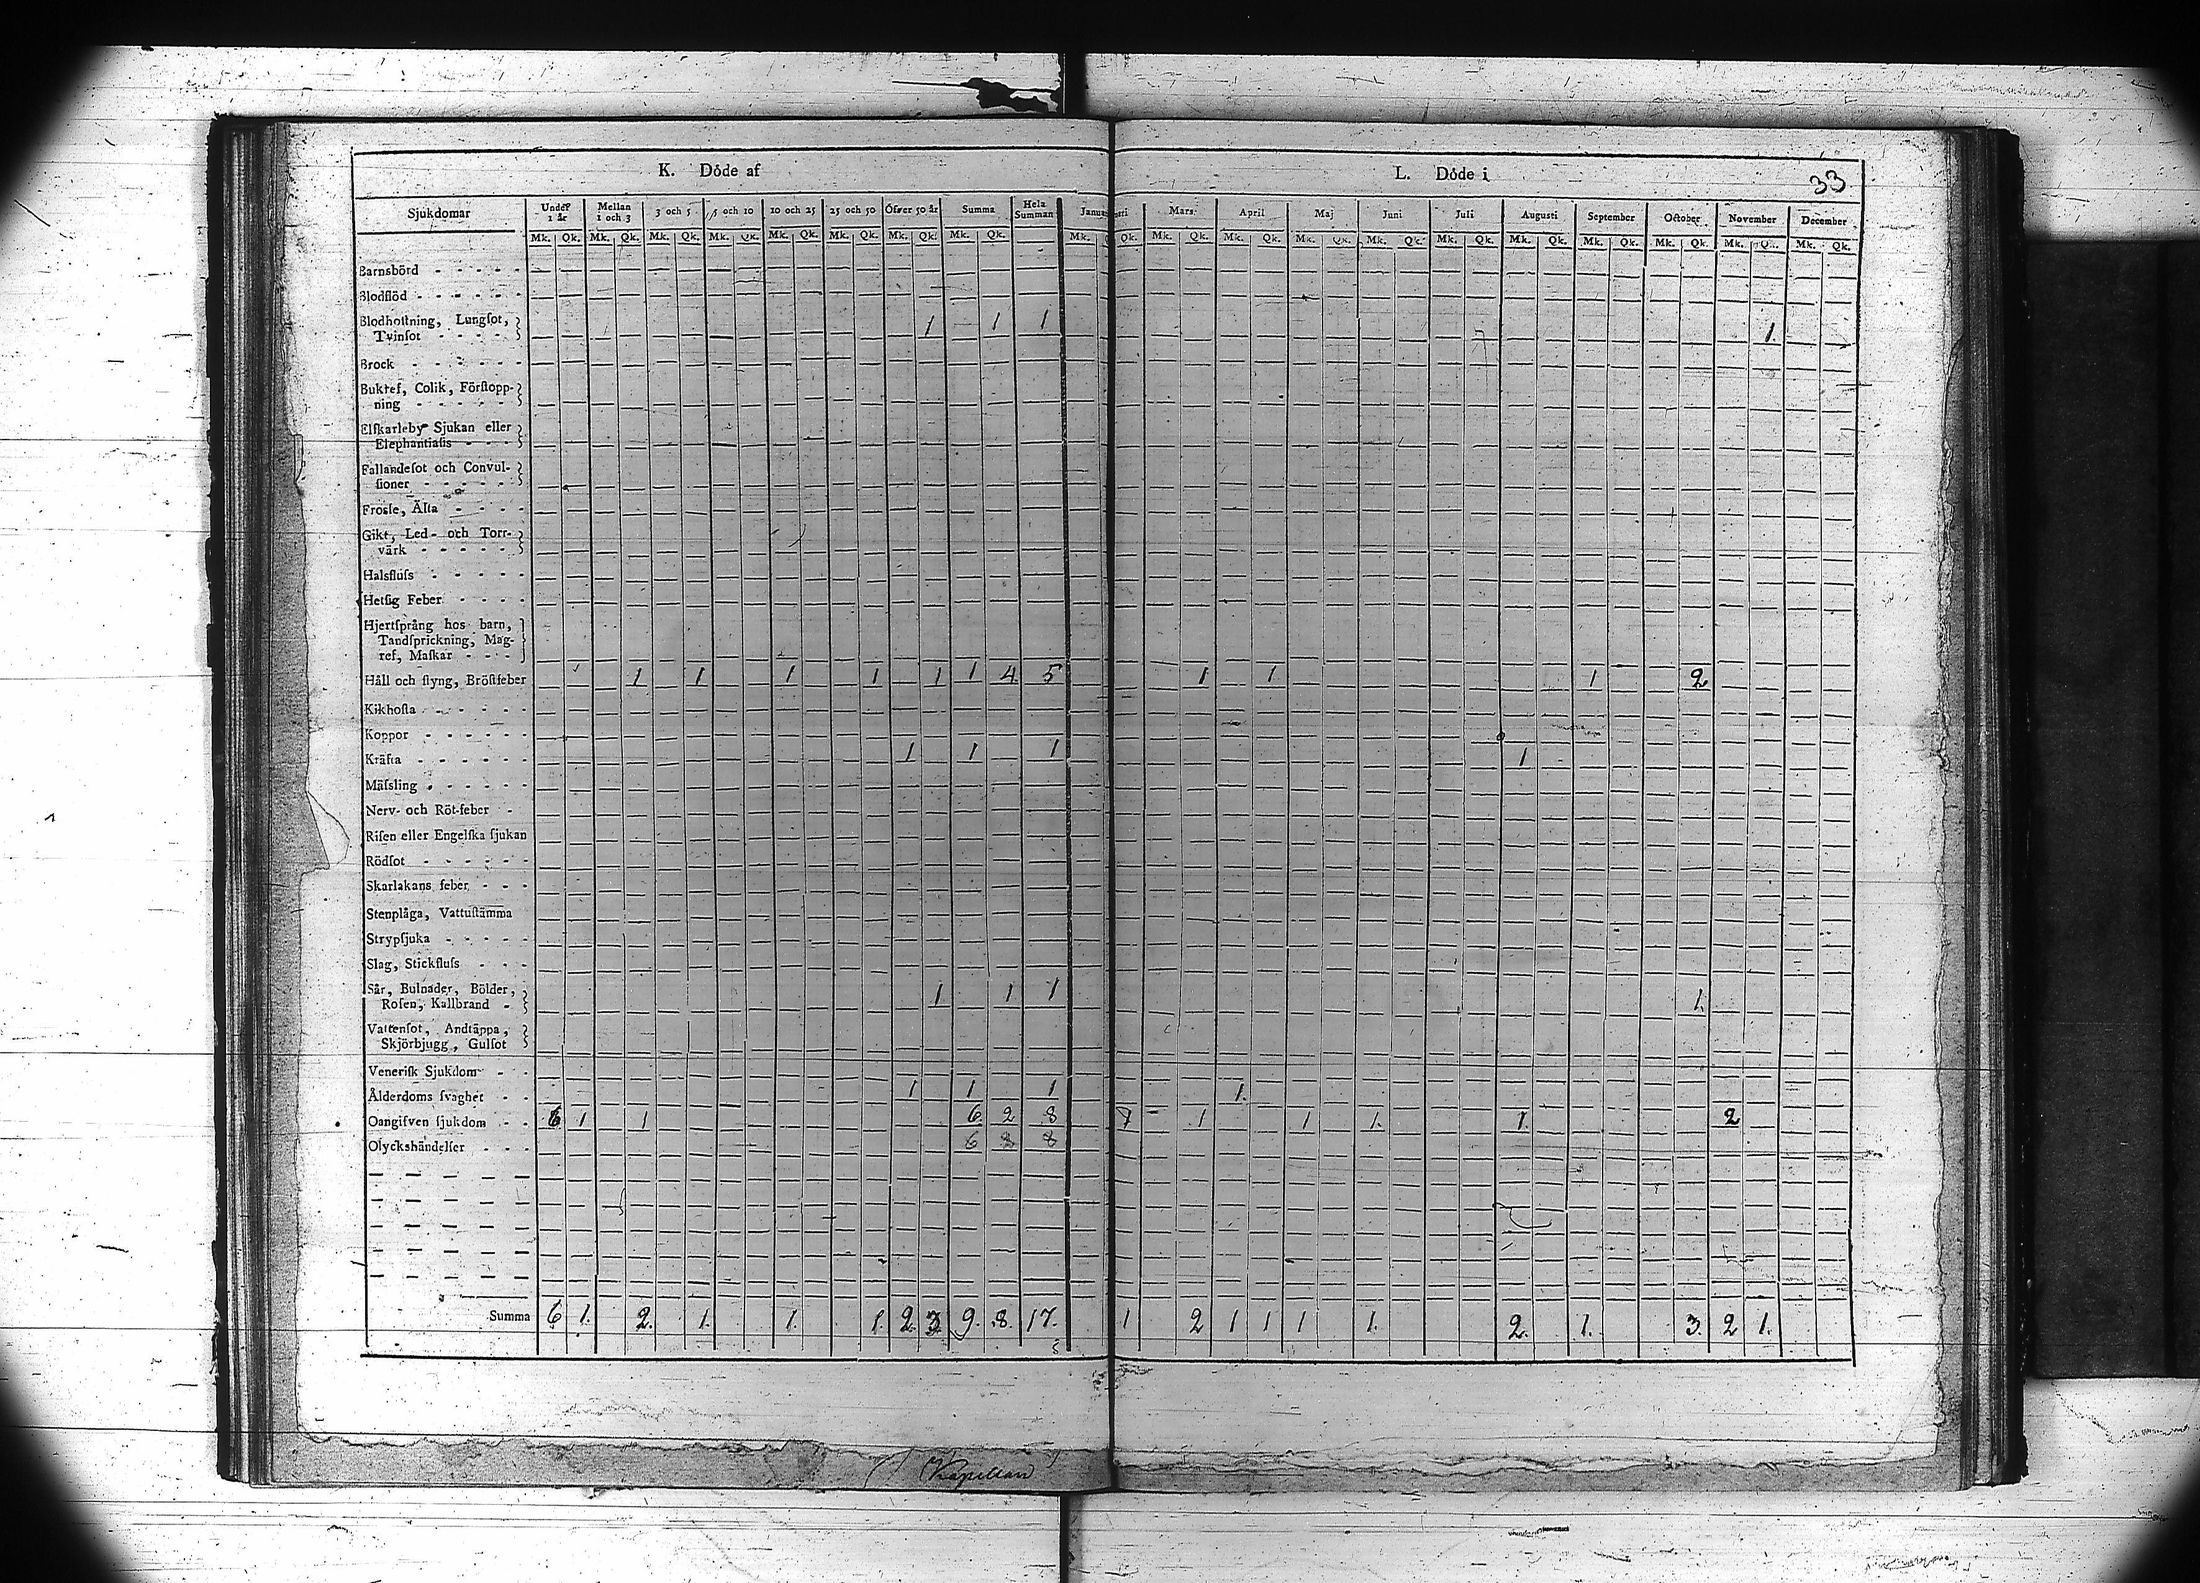 K. Döde af
L. Döde i
33
Sjukdomar Under 1 år Mellan 1 och 3 3 och 5 5 och 10 10 och 25 25 och 50 Öfver 50 år Summa Hela Summan Januarii Mars April Maj Juni Juli Augusti September October November December
Mk. Qk. Mk. Qk. Mk. Qk. Mk. Qk. Mk. Qk. Mk. Qk. Mk. Qk. Mk. Qk. Mk. Qk. Mk. Qk. Mk. Qk. Mk. Qk. Mk. Qk. Mk. Qk. Mk. Qk. Mk. Qk. Mk. Qk. Mk. Qk. Mk. Mk. Qk.
Barnsbörd - - - - -
Blodflöd - - - - - -
Blodhoſtning, Lungſot,
Tvinſot - - - - 1 1 1 1.
Brock - - - - -
Bukref, Colik, Förſtopp-
ning - - - - -
Elſkarleby Sjukan eller
Elephantiaſis - - -
Fallandeſot och Convul-
ſioner - - - - -
Froſſa, Älta - - - -
Gikt, Led- och Torr-
värk - - - - -
Halsfluſs - - - - -
Hetſig Feber - - - -
Hjertſprång hos barn,
Tandſprickning, Mag-
ref, Maſkar - - -
Håll och ſtyng, Bröſtfeber 1 1 1 1 1 1 4 5 1 1 1 2
Kikhoſta - - - - -
Koppor - - - - - -
Kräfta - - - - - - 1 1 1 1
Mäſsling - - - - - -
Nerv- och Röt-feber -
Riſen eller Engelſka ſjukan
Rödſot - - - - - -
Skarlakans feber - - -
Stenplåga, Vattuſtämma
Strypſjuka - - - - -
Slag, Stickfluſs - - -
Sår, Bulnader, Bölder,
Roſen, Kallbrand - 1 1 1 1.
Vattenſot, Andtäppa,
Skjörbjugg, Gulſot
Veneriſk Sjukdom - -
Ålderdoms ſvaghet - - 1 1 1 1.
Oangifven ſjukdom - - 6 1 1 6 2 8 1 1 1. 1. 2
Olyckshändelſer - - - 6 8 8
Summa 6 1. 2. 1. 1. 1. 2. 3. 9. 8. 17. 1 2 1 1 1 1. 2. 1. 3. 2 1.
Kapellan